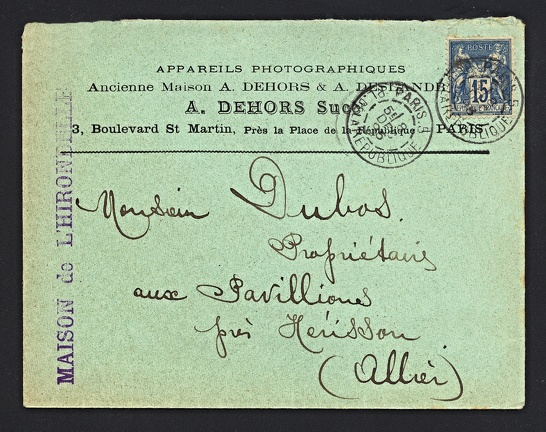 APPAREILS PHOTOGRAPHIQUES
Ancienne Maison A. DEHORS & A. DESLANDRES
A. DEHORS Succ
3, Boulevard St Martin, Près la Place de la République PARIS
POSTE
15
PARIS
REPUBLIQUE
MAISON de L'HIRONDELLE
Monsieur Dubos.
Propriétaire
aux Pavillions
près Hérisson
(Allier)